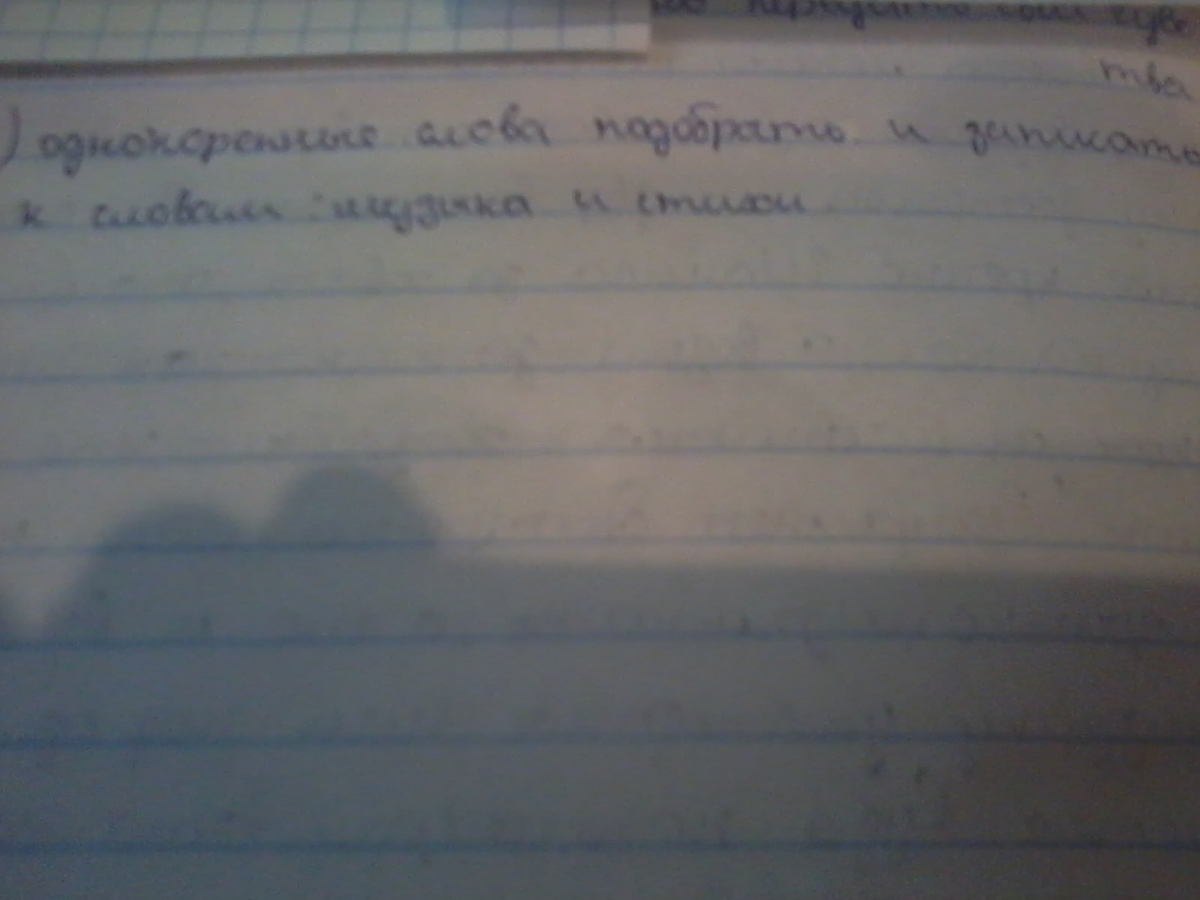 тва
) однокоренные слова подобрать и записать
к словам: музыка и стихи